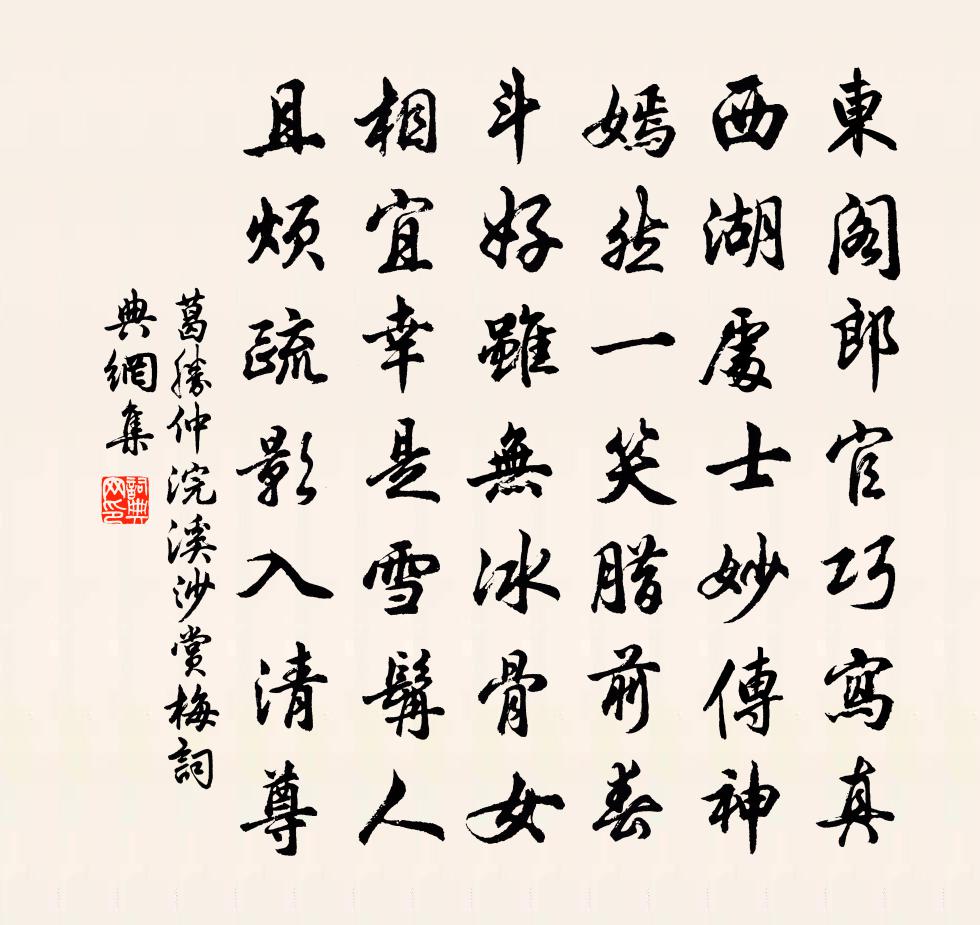 東閣郎官巧寫真
西湖處士妙傳神
嫣然一笑腊前春
斗好雖無冰骨女
相宜幸是雪髯人
且煩疏影入清尊
葛勝仲浣溪沙賞梅詞
典網集
詞典网印